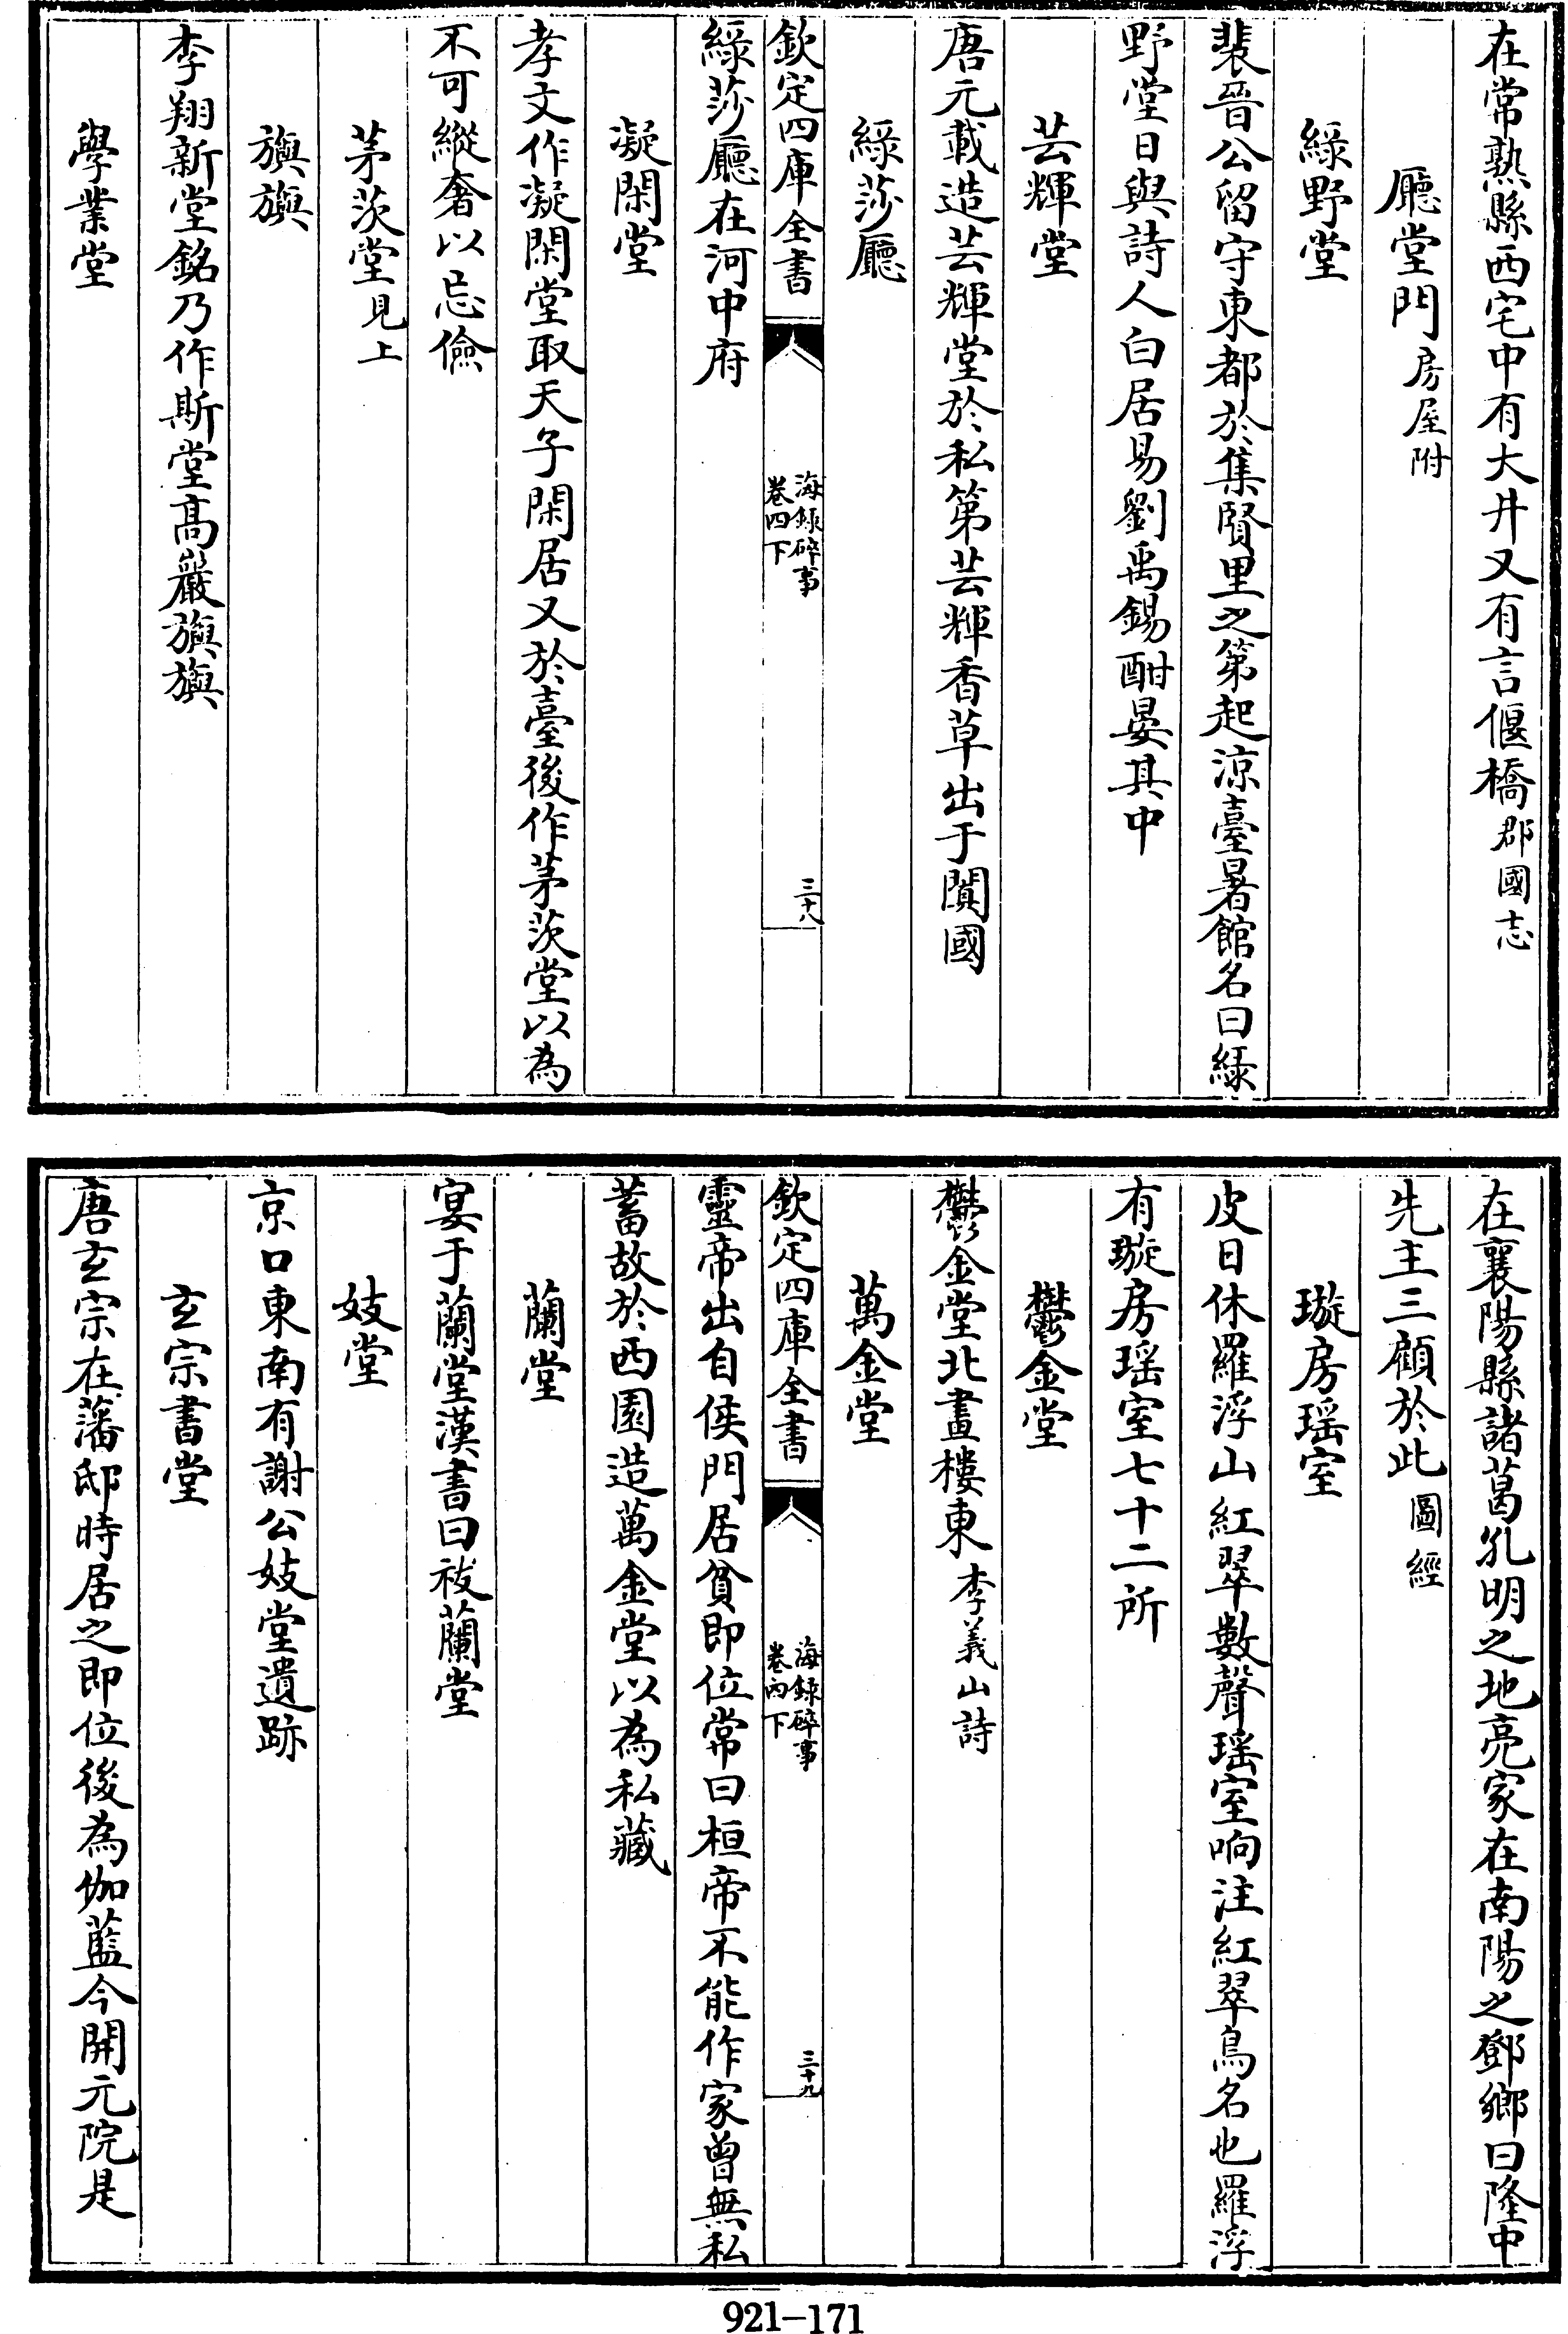 在常熟縣西宅中有大井又有言偃橋郡國志
廳堂門房屋附
綠野堂
裴晉公留守東都於集賢里之第起涼臺暑館名曰綠
野堂日與詩人白居易劉禹錫酣晏其中
芸輝堂
唐元載造芸輝堂於私第芸輝香草出于闐國
綠莎廳
欽定四庫全書
海錄碎事
卷四下
三十八
綠莎廳在河中府
凝閑堂
孝文作凝閑堂取天子閑居又於臺後作茅茨堂以為
不可縱奢以忘儉
茅茨堂見上
旟旟
李翔新堂銘乃作斯堂高巖旟旟
學業堂
在襄陽縣諸葛孔明之地亮家在南陽之鄧鄉曰隆中
先主三顧於此圖經
璇房瑶室
皮日休羅浮山紅翠數聲瑶室响注紅翠鳥名也羅浮
有璇房瑶室七十二所
鬱金堂
鬱金堂北畫樓東李義山詩
萬金堂
欽定四庫全書
海錄碎事
卷四下
三十九
靈帝出自侯門居貧即位常曰桓帝不能作家曾無私
蓄故於西園造萬金堂以為私藏
蘭堂
宴于蘭堂漢書曰祓蘭堂
妓堂
京口東南有謝公妓堂遺跡
玄宗書堂
唐玄宗在藩邸時居之即位後為伽藍今開元院是
921-171